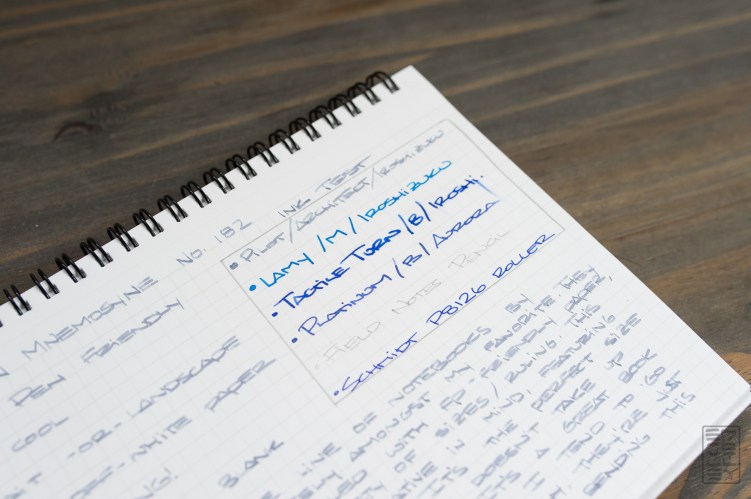 No. 182 INK TEST
PILOT/ARCHITECT/IROSHIZUKU
• LAMY/M/IROSHIZUKU
• TACTILE TURN/B/IROSHI.
• PLATINUM/B/AURORA
FIELD NOTES PENCIL
• SCHMIDT P8126 ROLLER
MNEMOSYNE
PEN FRIENDLY
COOL
-OR- LANDSCAPE
OFF-WHITE PAPER
BLANK
LINE OF NOTEBOOKS BY
AMONGST MY FAVORITE THEY
WITH FP-FRIENDLY PAPER,
OF SIZES/RULING. THIS
IN MIND, FEATURING
THE PERFECT SIZE
DOESN'T TAKE UP
A GREAT BOOK
TEND TO GO
THEY'RE JUST
THIS